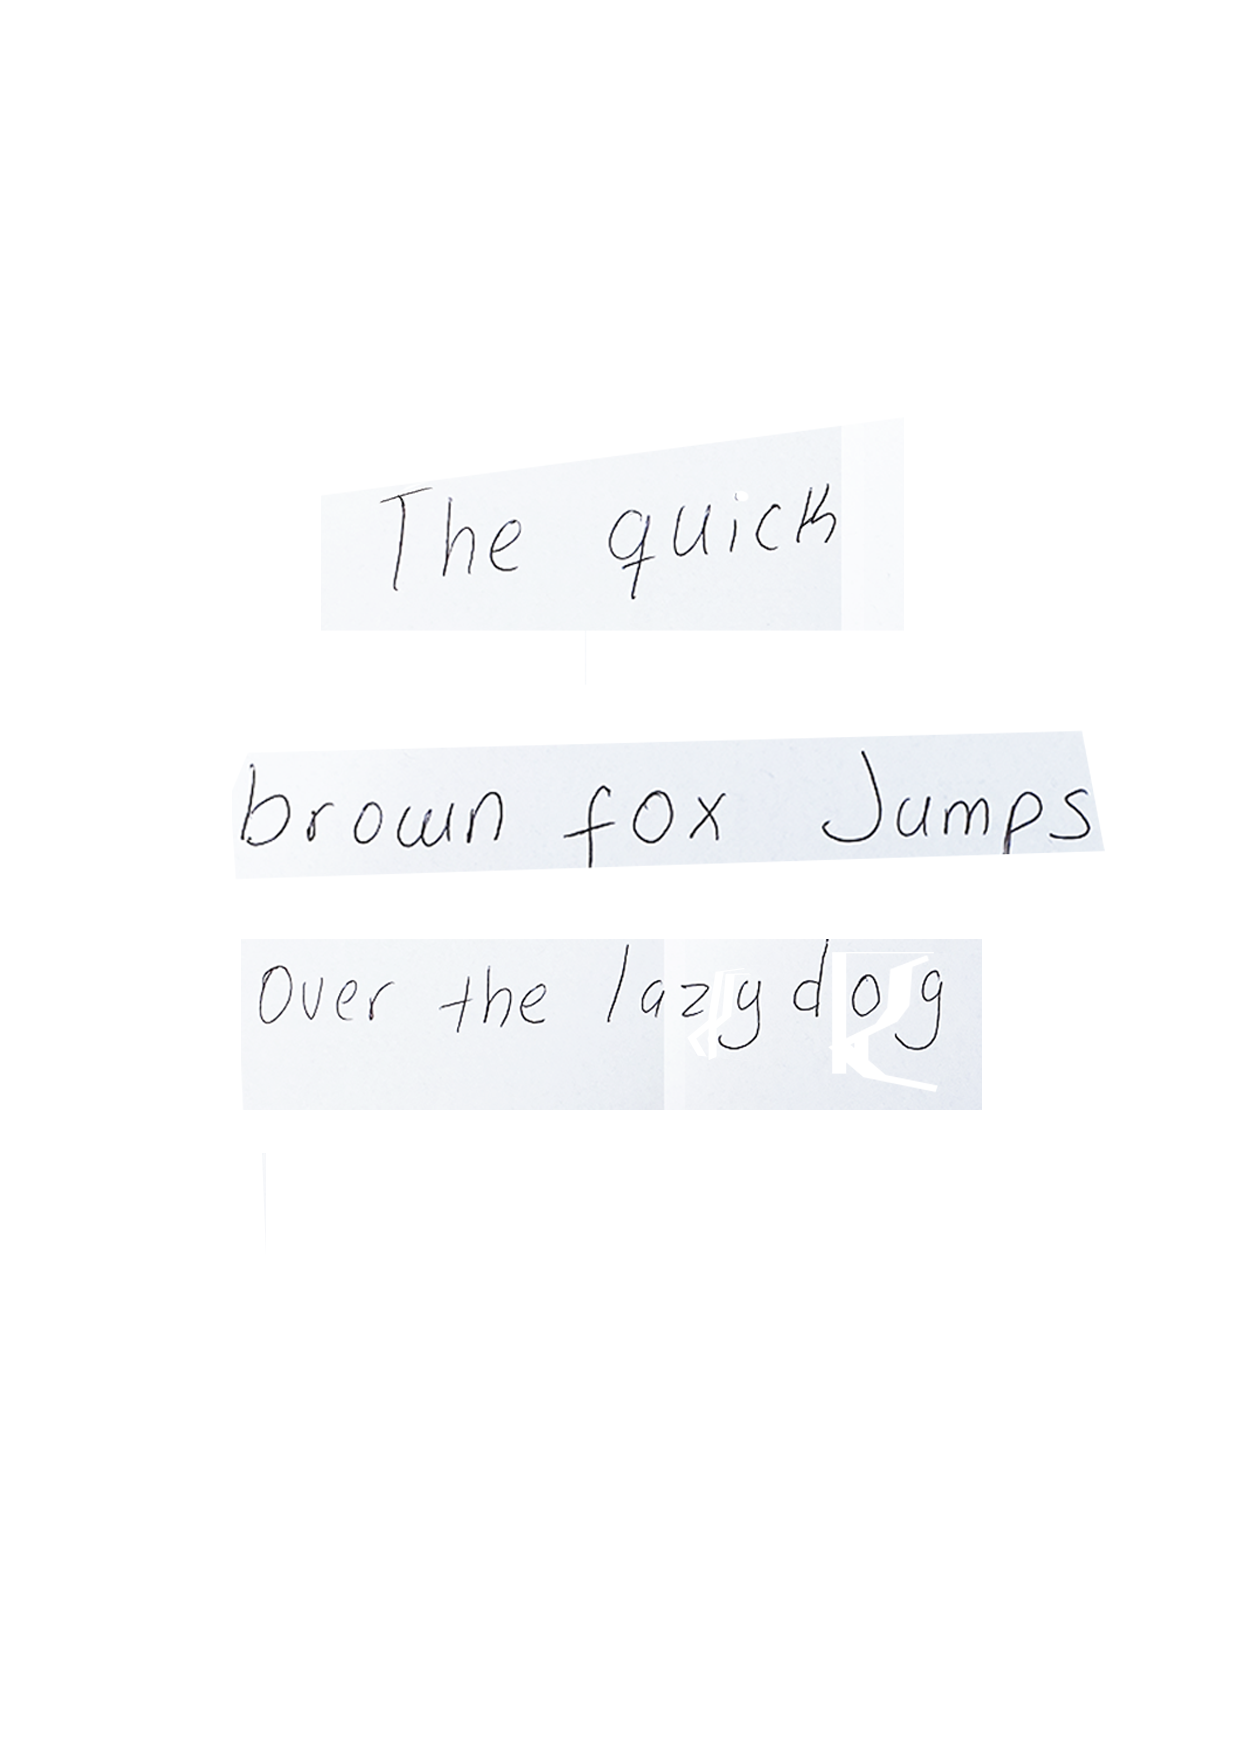 The quick
brown fox Jumps
Over the lazy dog